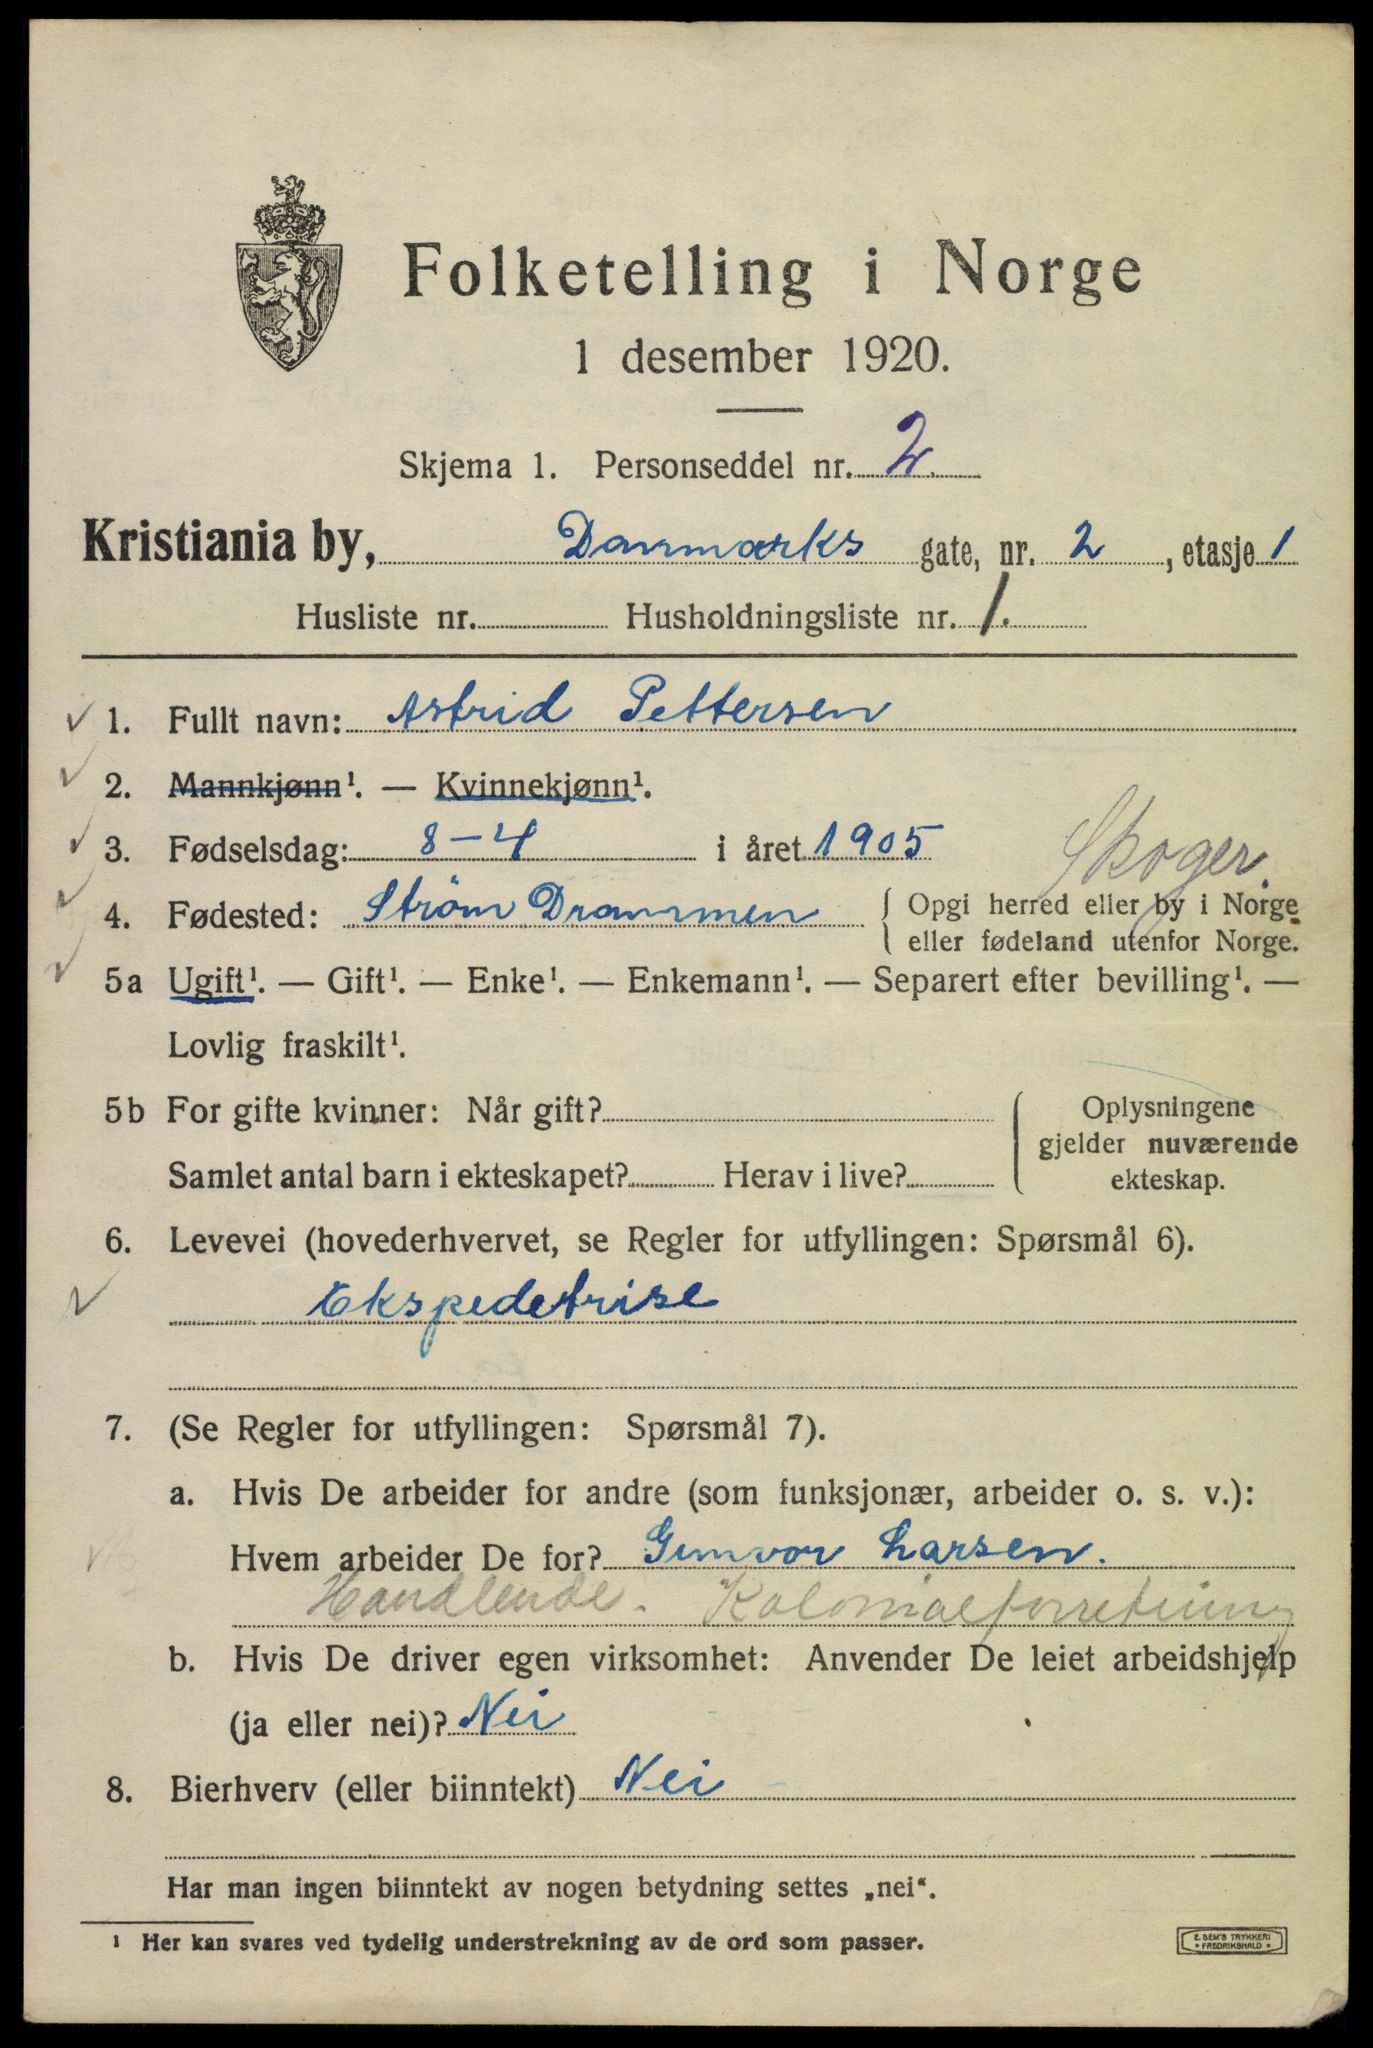 Folketelling i Norge
1 desember 1920.
Skjema 1. Personseddel nr. 2
Kristiania by, Danmarks gate, nr. 2, etasje 1
Husliste nr. Husholdningsliste nr. 1.
1. Fullt navn: Astrid Pettersen
2. Mannkjønn¹. — Kvinnekjønn¹.
3. Fødselsdag: 8-4 i året 1905
Skoger.
4. Fødested: Strøm Drammen { Opgi herred eller by i Norge
eller fødeland utenfor Norge.
5a Ugift¹. — Gift¹. — Enke¹. — Enkemann¹. — Separert efter bevilling¹. —
Lovlig fraskilt¹.
5b For gifte kvinner: Når gift? Oplysningene
gjelder nuværende
Samlet antal barn i ekteskapet? Herav i live? ekteskap.
6. Levevei (hovederhvervet, se Regler for utfyllingen: Spørsmål 6).
Ekspedetrise
7. (Se Regler for utfyllingen: Spørsmål 7).
a. Hvis De arbeider for andre (som funksjonær, arbeider o. s. v.):
Hvem arbeider De for? Gunvor Larsen.
Handlende. Kolonialforretning
b. Hvis De driver egen virksomhet: Anvender De leiet arbeidshjelp
(ja eller nei)? Nei
8. Bierhverv (eller biinntekt) Nei
Har man ingen biinntekt av nogen betydning settes „nei“.
¹ Her kan svares ved tydelig understrekning av de ord som passer.
E. SEM'S TRYKKERI
• FREDRIKSHALD •